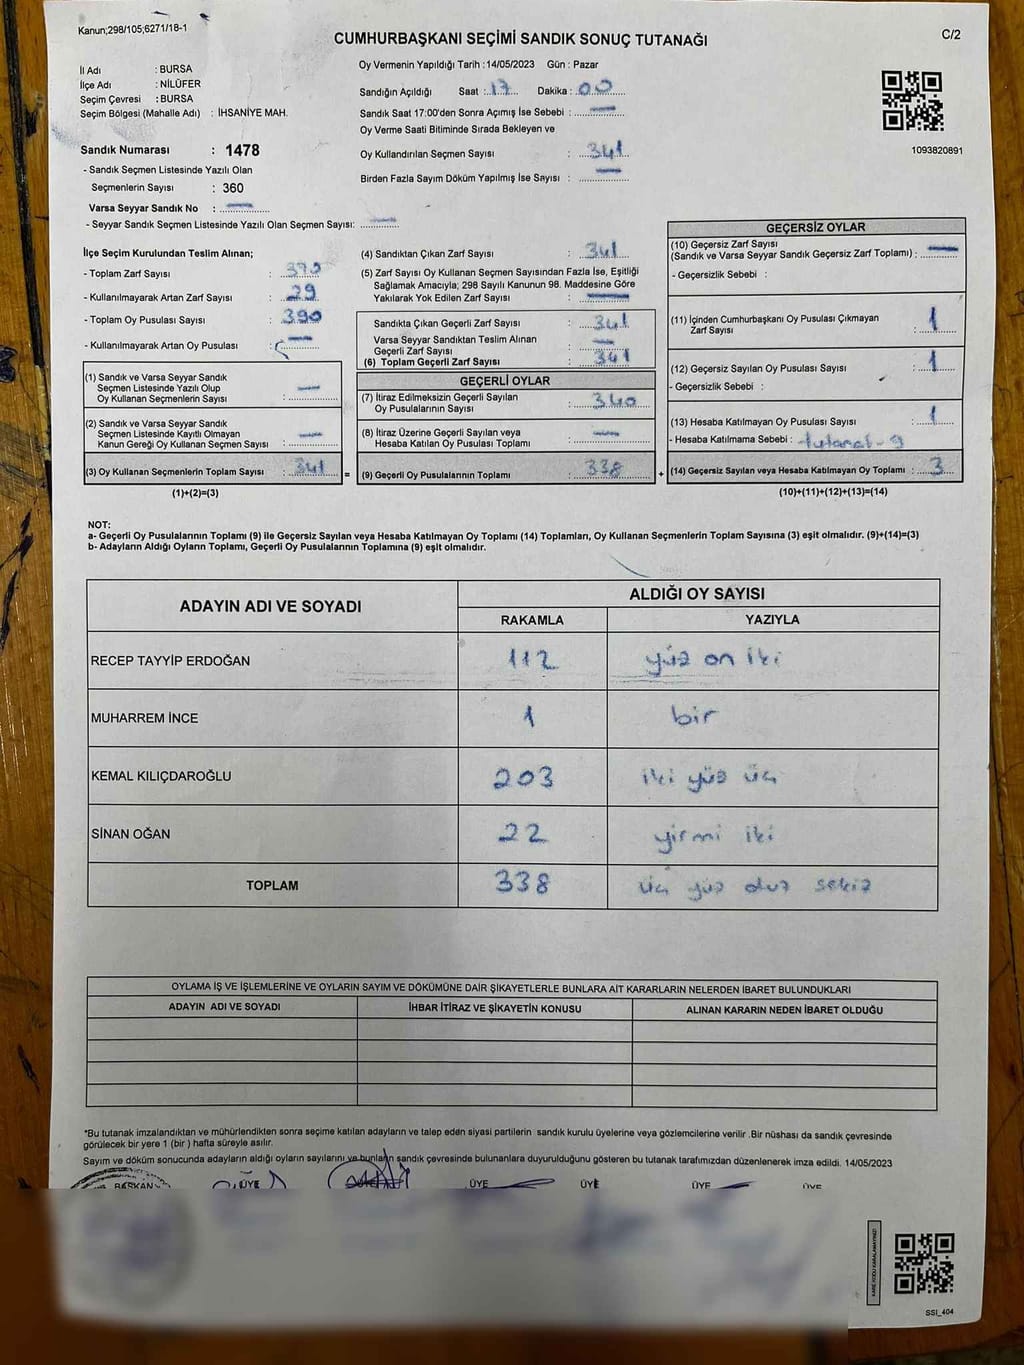 Kanun;298/105;6271/18-1
C/2
CUMHURBAŞKANI SEÇİMİ SANDIK SONUÇ TUTANAĞI
İl Adı : BURSA
İlçe Adı : NİLÜFER
Seçim Çevresi : BURSA
Seçim Bölgesi (Mahalle Adı) : İHSANİYE MAH.
Sandık Numarası : 1478
- Sandık Seçmen Listesinde Yazılı Olan
Seçmenlerin Sayısı : 360
Varsa Seyyar Sandık No : —
- Seyyar Sandık Seçmen Listesinde Yazılı Olan Seçmen Sayısı: —
Oy Vermenin Yapıldığı Tarih :14/05/2023 Gün : Pazar
Sandığın Açıldığı Saat : 17 Dakika : 00
Sandık Saat 17:00'den Sonra Açımış İse Sebebi : —
Oy Verme Saati Bitiminde Sırada Bekleyen ve
Oy Kullandırılan Seçmen Sayısı : 341
Birden Fazla Sayım Döküm Yapılmış İse Sayısı : —
1093820891
İlçe Seçim Kurulundan Teslim Alınan;
- Toplam Zarf Sayısı :
- Kullanılmayarak Artan Zarf Sayısı : 29
- Toplam Oy Pusulası Sayısı : 390
- Kullanılmayarak Artan Oy Pusulası : —
(1) Sandık ve Varsa Seyyar Sandık
Seçmen Listesinde Yazılı Olup
Oy Kullanan Seçmenlerin Sayısı : —
(2) Sandık ve Varsa Seyyar Sandık
Seçmen Listesinde Kayıtlı Olmayan
Kanun Gereği Oy Kullanan Seçmen Sayısı : —
(3) Oy Kullanan Seçmenlerin Toplam Sayısı : 341 =
(1)+(2)=(3)
(4) Sandıktan Çıkan Zarf Sayısı : 341
(5) Zarf Sayısı Oy Kullanan Seçmen Sayısından Fazla İse, Eşitliği
Sağlamak Amacıyla; 298 Sayılı Kanunun 98. Maddesine Göre
Yakılarak Yok Edilen Zarf Sayısı : —
Sandıkta Çıkan Geçerli Zarf Sayısı : 341
Varsa Seyyar Sandıktan Teslim Alınan
Geçerli Zarf Sayısı : —
(6) Toplam Geçerli Zarf Sayısı : 341
GEÇERLİ OYLAR
(7) İtiraz Edilmeksizin Geçerli Sayılan
Oy Pusulalarının Sayısı : 340
(8) İtiraz Üzerine Geçerli Sayılan veya
Hesaba Katılan Oy Pusulası Toplamı : —
(9) Geçerli Oy Pusulalarının Toplamı : 338 +
GEÇERSİZ OYLAR
(10) Geçersiz Zarf Sayısı
(Sandık ve Varsa Seyyar Sandık Geçersiz Zarf Toplamı) : —
- Geçersizlik Sebebi :
(11) İçinden Cumhurbaşkanı Oy Pusulası Çıkmayan
Zarf Sayısı : 1
(12) Geçersiz Sayılan Oy Pusulası Sayısı : 1
- Geçersizlik Sebebi :
(13) Hesaba Katılmayan Oy Pusulası Sayısı : 1
- Hesaba Katılmama Sebebi : tutanak-9
(14) Geçersiz Sayılan veya Hesaba Katılmayan Oy Toplamı : 3
(10)+(11)+(12)+(13)=(14)
NOT:
a- Geçerli Oy Pusulalarının Toplamı (9) ile Geçersiz Sayılan veya Hesaba Katılmayan Oy Toplamı (14) Toplamları, Oy Kullanan Seçmenlerin Toplam Sayısına (3) eşit olmalıdır. (9)+(14)=(3)
b- Adayların Aldığı Oyların Toplamı, Geçerli Oy Pusulalarının Toplamına (9) eşit olmalıdır.
ADAYIN ADI VE SOYADI
ALDIĞI OY SAYISI
RAKAMLA YAZIYLA
RECEP TAYYİP ERDOĞAN 112 yüz on iki
MUHARREM İNCE 1 bir
KEMAL KILIÇDAROĞLU 203 iki yüz üç
SİNAN OĞAN 22 yirmi iki
TOPLAM 338 üç yüz otuz sekiz
OYLAMA İŞ VE İŞLEMLERİNE VE OYLARIN SAYIM VE DÖKÜMÜNE DAİR ŞİKAYETLERLE BUNLARA AİT KARARLARIN NELERDEN İBARET BULUNDUKLARI
ADAYIN ADI VE SOYADI İHBAR İTİRAZ VE ŞİKAYETİN KONUSU ALINAN KARARIN NEDEN İBARET OLDUĞU
*Bu tutanak imzalandıktan ve mühürlendikten sonra seçime katılan adayların ve talep eden siyasi partilerin sandık kurulu üyelerine veya gözlemcilerine verilir .Bir nüshası da sandık çevresinde
görülecek bir yere 1 (bir ) hafta süreyle asılır.
Sayım ve döküm sonucunda adayların aldığı oyların sayılarını ve bunların sandık çevresinde bulunanlara duyurulduğunu gösteren bu tutanak tarafımızdan düzenlenerek imza edildi. 14/05/2023
BAŞKAN ÜYE ÜYE ÜYE ÜYE ÜYE
KARE KODU KARALAMAYINIZ!
SSI_404